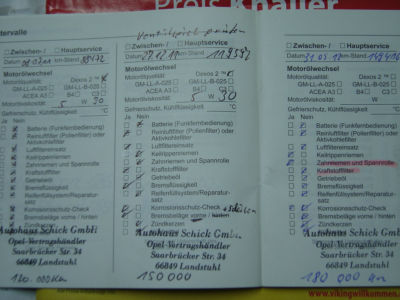 Preis Knaller
Ventilspiel prüfen
tervalle
Zwischen-/ Hauptservice
Datum km-Stand 
Motorölwechsel
Motorölqualität: Dexos 2 ™
GM-LL-A-025 GM-LL-B-025
ACEA A3 B4 C3
Motorölviskosität 5 W 30
Gefrierschutz, Kühlflüssigkeit °C
Ja Nein
Batterie (Funkfernbedienung)
Reinluftfilter (Pollenfilter) oder
Aktivkohlefilter
Luftfiltereinsatz
Keilrippenriemen
Zahnriemen und Spannrolle
Kraftstofffilter
Getriebeöl
Bremsflüssigkeit
Reifenfüllsystem/Reparatur-
satz
Korrosionsschutz-Check
Bremsbeläge vorne / hinten
Zündkerzen
Autohaus Schick GmbH
Opel-Vertragshändler
Saarbrücker Str. 34
66849 Landstuhl
120.000 Km
Zwischen-/ Hauptservice
Datum km-Stand
Motorölwechsel
Motorölqualität: Dexos 2 ™
GM-LL-A-025 GM-LL-B-025
ACEA A3 B4 C3
Motorölviskosität 5 W 30
Gefrierschutz, Kühlflüssigkeit °C
Ja Nein
Batterie (Funkfernbedienung)
Reinluftfilter (Pollenfilter) oder
Aktivkohlefilter
Luftfiltereinsatz
Keilrippenriemen
Zahnriemen und Spannrolle
Kraftstofffilter
Getriebeöl
Bremsflüssigkeit
Reifenfüllsystem/Reparatur-
satz
Korrosionsschutz-Check
Bremsbeläge vorne / hinten
Zündkerzen
Autohaus Schick GmbH
Opel-Vertragshändler
Saarbrücker Str. 34
66849 Landstuhl
150000
Zwischen-/ Hauptservice
Datum km-Stand
Motorölwechsel
Motorölqualität: Dexos 2
GM-LL-A-025 GM-LL-B-025
ACEA A3 B4 C3
Motorölviskosität W
Gefrierschutz, Kühlflüssigkeit °C
Ja Nein
Batterie (Funkfernbedienung)
Reinluftfilter (Pollenfilter) oder
Aktivkohlefilter
Luftfiltereinsatz
Keilrippenriemen
Zahnriemen und Spannrolle
Kraftstofffilter
Getriebeöl
Bremsflüssigkeit
Reifenfüllsystem/Reparatur-
satz
Korrosionsschutz-Check
Bremsbeläge vorne / hinten
Zündkerzen
Autohaus Schick GmbH
Opel-Vertragshändler
Saarbrücker Str. 34
66849 Landstuhl
180 000 Km
www.vikingwillkommen.